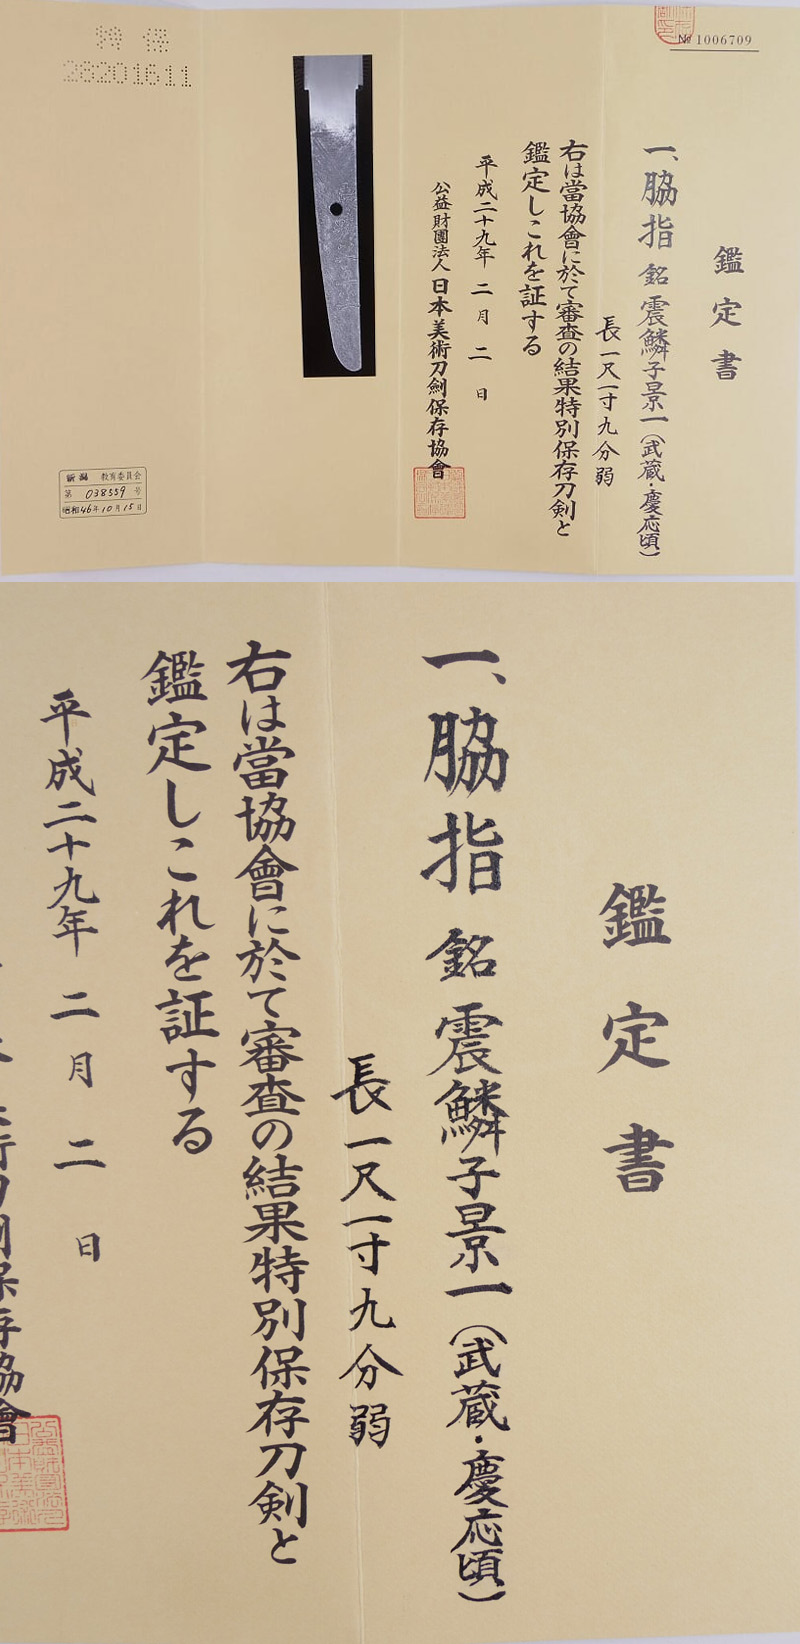 № 1006709
鑑定書
一、脇指 銘 震鱗子景一(武蔵・慶応頃)
長一尺一寸九分弱
右は當協會に於て審査の結果特別保存刀剣と
鑑定しこれを証する
平成二十九年 二月 二日
公益財團法人 日本美術刀劍保存協會
特保
28201611
新潟 教育委員会
第 038559 号
昭和46年10月15日
鑑定書
一、脇指 銘 震鱗子景一(武蔵・慶応頃)
長一尺一寸九分弱
右は當協會に於て審査の結果特別保存刀剣と
鑑定しこれを証する
平成二十九年 二月 二日
刀劍保存協會